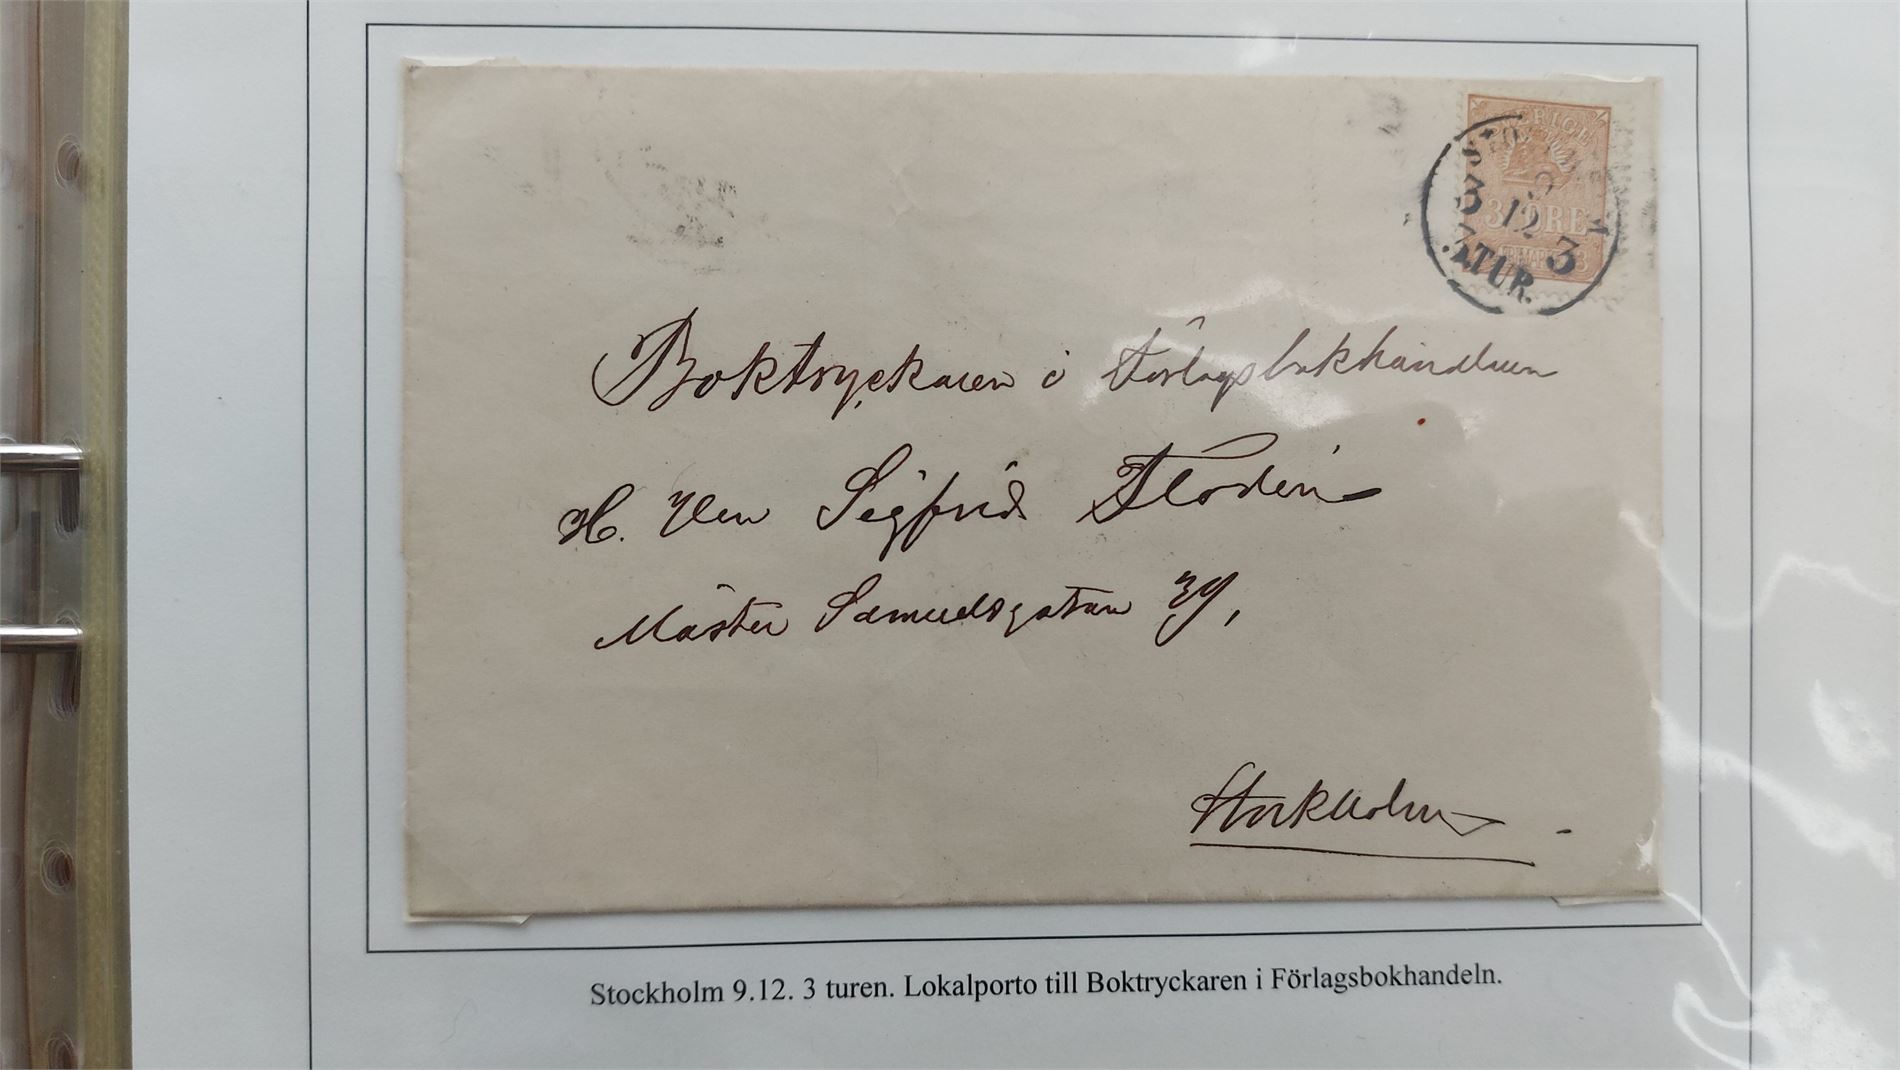 SVERIGE
3 ÖRE
FRIMÄRKE
9
3 12 3
TUR.
Boktryckaren i Förlagsbokhandlaren
H. Herr Sigfrid Flodin
Mäster Samuelsgatan 39,
Stockholm
Stockholm 9.12. 3 turen. Lokalporto till Boktryckaren i Förlagsbokhandeln.